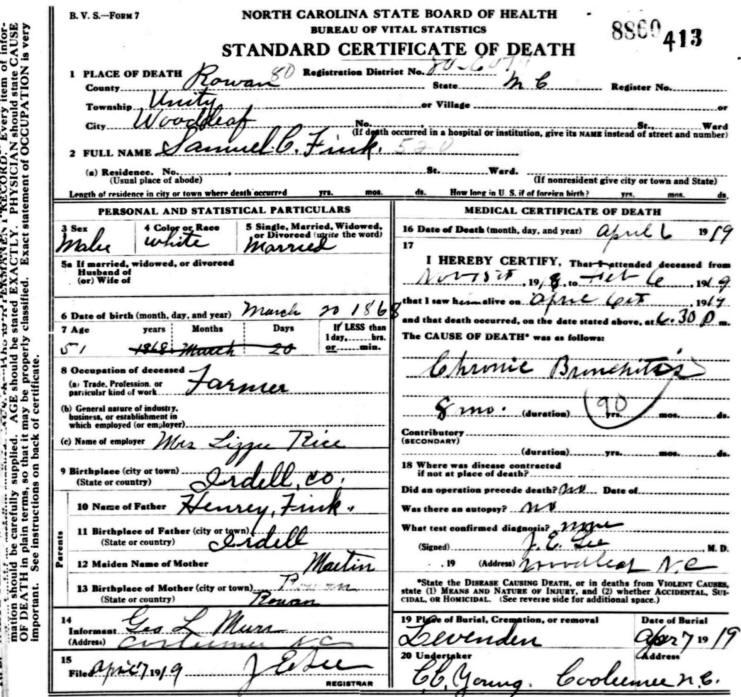 B. V. S.—Form 7
NORTH CAROLINA STATE BOARD OF HEALTH
BUREAU OF VITAL STATISTICS
STANDARD CERTIFICATE OF DEATH
8860 413
1 PLACE OF DEATH Rowan 80 Registration District No.
County State N C Register No.
Township Unity or Village or
City Woodleaf No. St., Ward
(If death occurred in a hospital or institution, give its NAME instead of street and number)
2 FULL NAME Samuel C. Fink. 520
(a) Residence. No. St. Ward.
(Usual place of abode) (If nonresident give city or town and State)
Length of residence in city or town where death occurred yrs. mos. ds. How long in U. S. if of foreign birth? yrs. mos. ds.
PERSONAL AND STATISTICAL PARTICULARS
3 Sex 4 Color or Race 5 Single, Married, Widowed, or Divorced (write the word)
Male white Married
5a If married, widowed, or divorced
Husband of
(or) Wife of
6 Date of birth (month, day, and year) March 20 1868
7 Age years Months Days If LESS than
1 day,......hrs.
or......min.
51 1868 March 20
8 Occupation of deceased
(a) Trade, Profession, or particular kind of work Farmer
(b) General nature of industry,
business, or establishment in
which employed (or employer)
(c) Name of employer Mrs Lizzie Rice
9 Birthplace (city or town)
(State or country) Irdell, co.
Parents
10 Name of Father Henrey, Fink.
11 Birthplace of Father (city or town)
(State or country) Irdell
12 Maiden Name of Mother Martin
13 Birthplace of Mother (city or town)
(State or country) Rowan
14
Informant Geo L
(Address) N.C
15
Filed Apr 7 1919 J E Lee
REGISTRAR
MEDICAL CERTIFICATE OF DEATH
16 Date of Death (month, day, and year) April 6 1919
17
I HEREBY CERTIFY, That I attended deceased from
Nov 1st, 1918, to Feb 6 1919
that I saw him alive on April 6th 1919
and that death occurred, on the date stated above, at 6.30 P m.
The CAUSE OF DEATH* was as follows:
Chronic Bronchitis
8 mo. (duration) 90 yrs. mos. ds.
Contributory
(SECONDARY)
(duration) yrs. mos. ds.
18 Where was disease contracted
if not at place of death?
Did an operation precede death? no Date of
Was there an autopsy? no
What test confirmed diagnosis? none
(Signed) J. E. Lee M. D.
, 19 (Address) Woodleaf N.C
*State the DISEASE CAUSING DEATH, or in deaths from VIOLENT CAUSES,
state (1) MEANS AND NATURE OF INJURY, and (2) whether ACCIDENTAL, SUI-
CIDAL, OR HOMICIDAL. (See reverse side for additional space.)
19 Place of Burial, Cremation, or removal Date of Burial
Apr 7 1919
20 Undertaker Address
C.C. Young. Cooleemee N.C.
mation should be carefully supplied. AGE should be stated EXACTLY. PHYSICIAN should state CAUSE
OF DEATH in plain terms, so that it may be properly classified. Exact statement of OCCUPATION is very
important. See instructions on back of certificate.